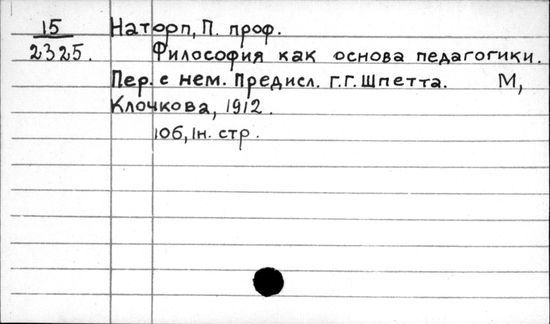 15 Наторп, П. проф.
2325. Философия как основа педагогики.
Пер. с нем. Предисл. Г.Г. Шпетта. М,
Клочкова, 1912.
106, Iн. стр.